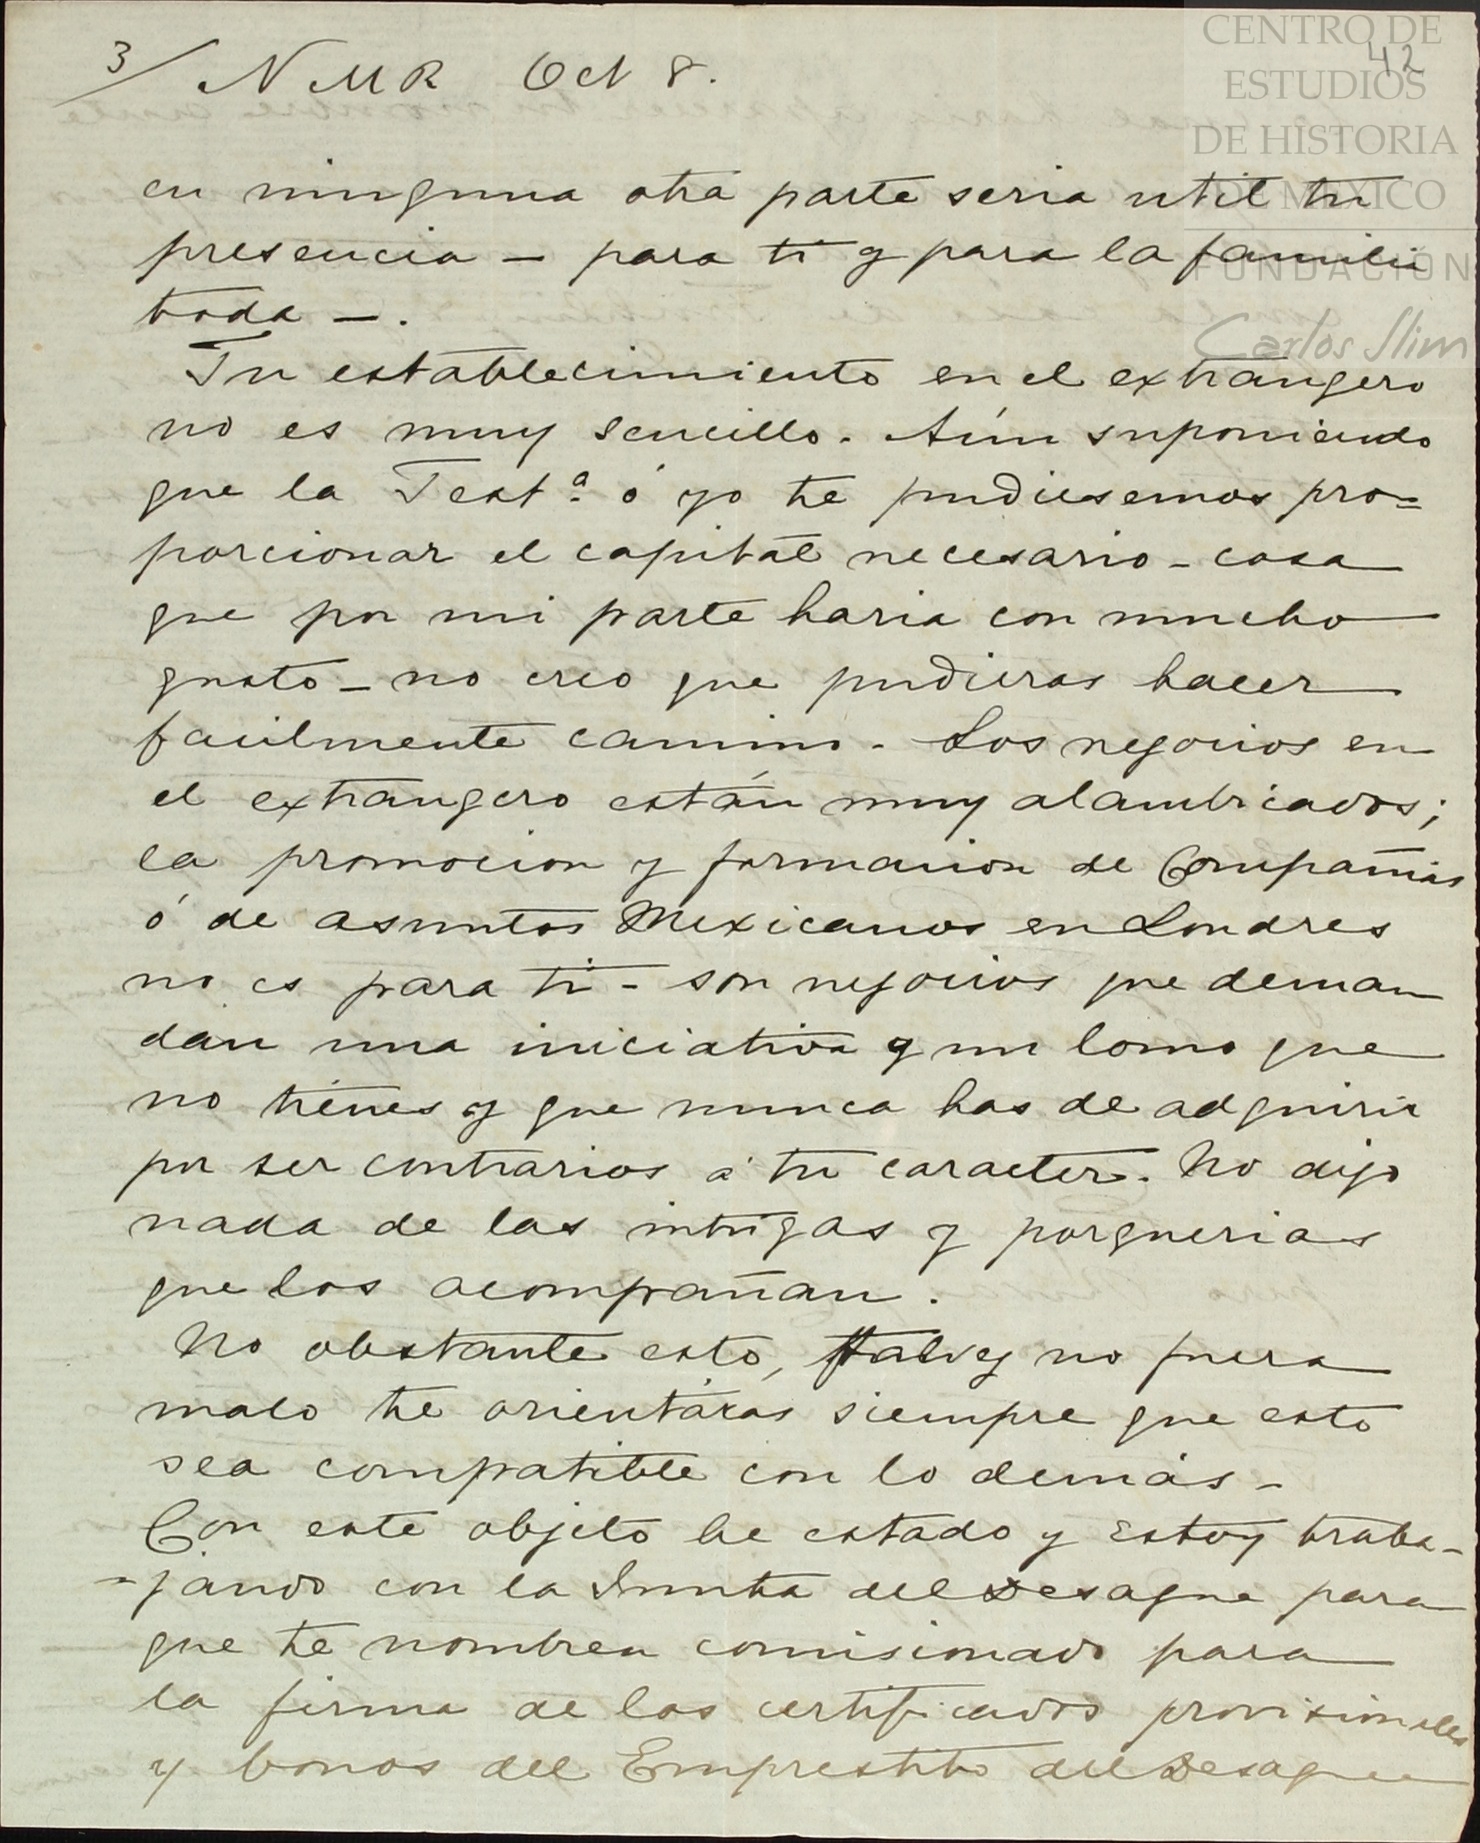 CENTRO DE
ESTUDIOS
DE HISTORIA
DE MÉXICO
FUNDACIÓN
Carlos Slim
42
3/ N M R Oct 8.
en ninguna otra parte seria util tu
presencia — para ti y para la familia
toda — .
Tu establecimiento en el extrangero
no es muy sencillo. Aún suponiendo
que la Testª ó yo te pudiesemos pro=
porcionar el capital necesario - cosa
que por mi parte haria con mucho
gusto - no creo que pudieras hacer
facilmente camino. Los negocios en
el extrangero están muy alambicados;
la promocion y formacion de Compañias
ó de asuntos Mexicanos en Londres
no es para ti - son negocios que deman
dan una iniciativa y un lomo que
no tienes y que nunca has de adquirir
por ser contrarios á tu caracter. No digo
nada de las intrigas y porquerias
que los acompañan.
No obstante esto, talvez no fuera
malo te orientáras siempre que esto
sea compatible con lo demás -
Con este objeto he estado y estoy traba-
-jando con la Junta del Desague para
que te nombren comisionado para
la firma de los certificados provisionales
y bonos del Emprestito del Desague